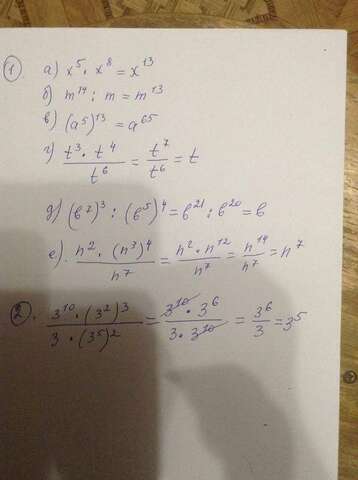 1 а) x⁵ · x⁸ = x¹³
б) m¹⁴ : m = m¹³
в) (a⁵)¹³ = a⁶⁵
г) (t³ · t⁴)/t⁶ = t⁷/t⁶ = t
д) (b⁷)³ : (b⁵)⁴ = b²¹ : b²⁰ = b
е). (n² · (n³)⁴)/n⁷ = (n² · n¹²)/n⁷ = n¹⁴/n⁷ = n⁷
2. (3¹⁰ · (3²)³)/(3 · (3⁵)²) = (3¹⁰ · 3⁶)/(3 · 3¹⁰) = 3⁶/3 = 3⁵